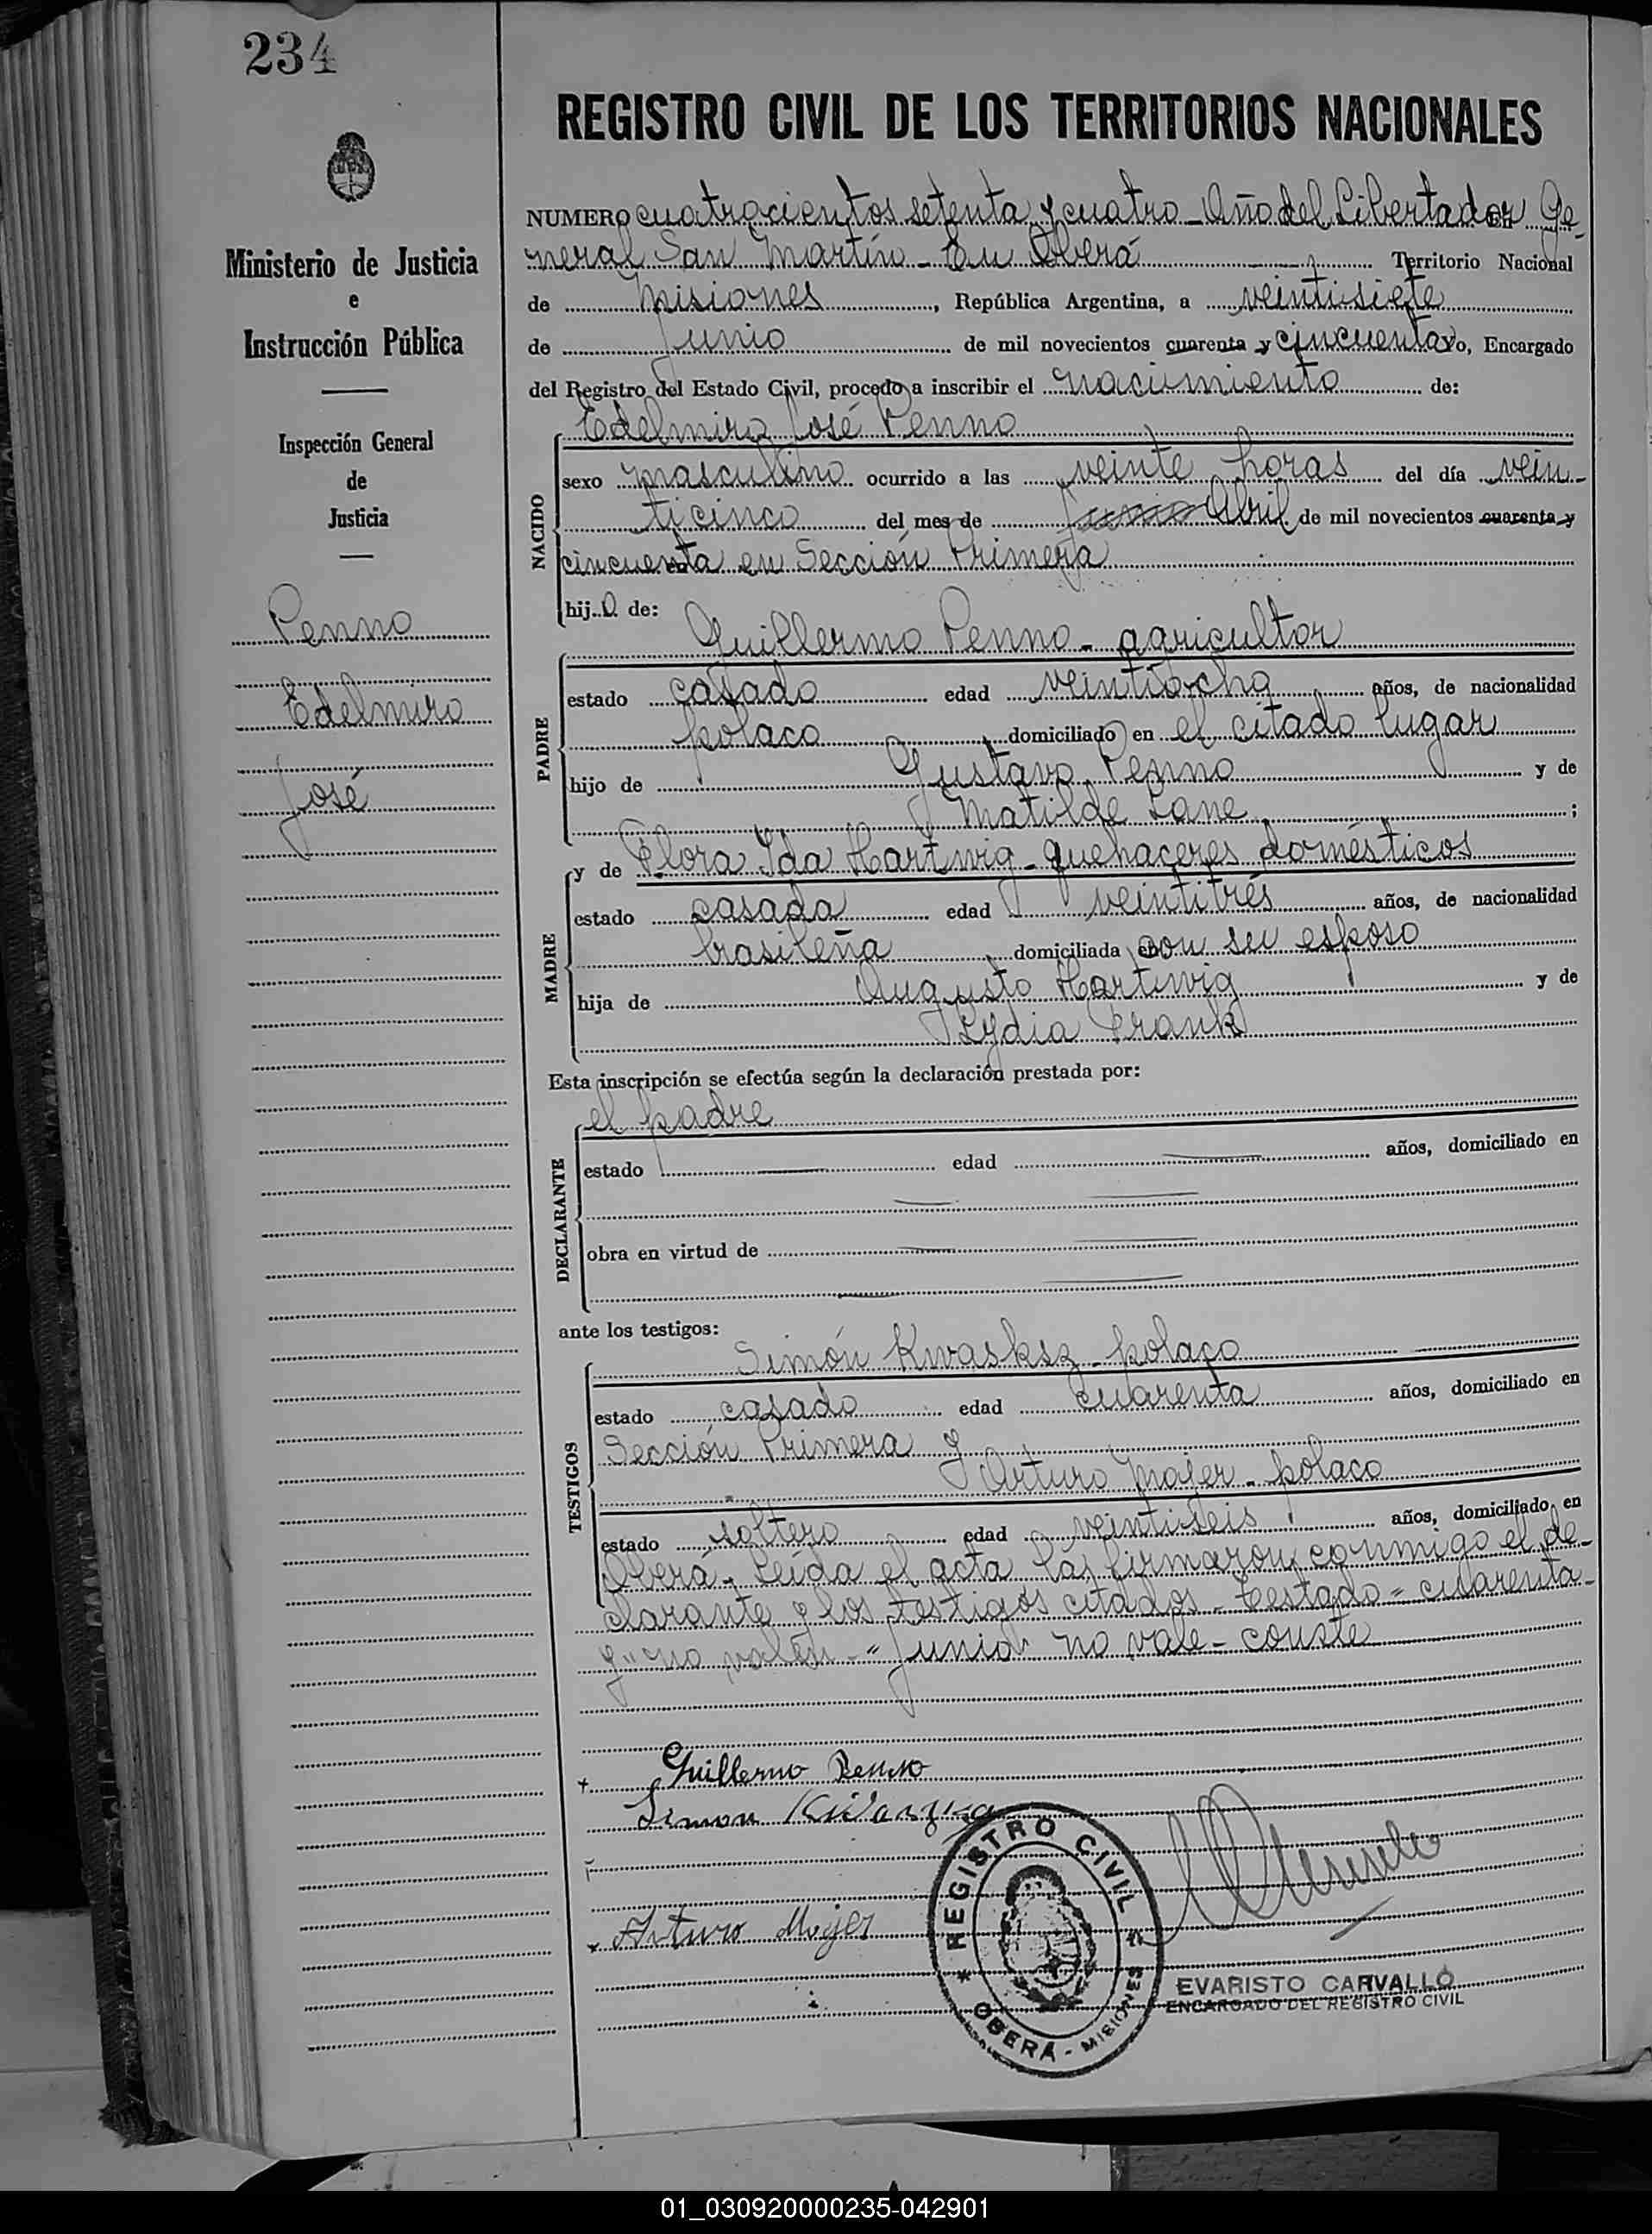 234
REGISTRO CIVIL DE LOS TERRITORIOS NACIONALES
Ministerio de Justicia
e
Instrucción Pública
Inspección General
de
Justicia
Penno
Edelmiro
José
NUMERO cuatrocientos setenta y cuatro - Año del Libertador Ge-
neral San Martín - En Oberá Territorio Nacional
de Misiones, República Argentina, a veintisiete
de junio de mil novecientos cuarenta y cincuenta yo, Encargado
del Registro del Estado Civil, procedo a inscribir el nacimiento de:
Edelmiro José Penno
NACIDO
sexo masculino ocurrido a las veinte horas del día vein-
ticinco del mes de junio Abril de mil novecientos cuarenta y
cincuenta en Sección Primera
hijo de:
Guillermo Penno - agricultor
PADRE
estado casado edad veintiocho años, de nacionalidad
polaco domiciliado en el citado lugar
hijo de Gustavo Penno y de
Matilde Lane;
y de Flora Ida Hartwig - quehaceres domésticos
MADRE
estado casada edad veintitrés años, de nacionalidad
brasileña domiciliada en con su esposo
hija de Augusto Hartwig y de
Lydia Frank
Esta inscripción se efectúa según la declaración prestada por:
el padre
DECLARANTE
estado edad años, domiciliado en
obra en virtud de
ante los testigos:
Simón Kwasksz - polaco
TESTIGOS
estado casado edad cuarenta años, domiciliado en
Sección Primera y
Arturo Majer - polaco
estado soltero edad veintiseis años, domiciliado en
Oberá - Leída el acta las firmaron conmigo el de-
clarante y los testigos citados - Testado = cuarenta
y" no valen - "junio" no vale - conste
Guillermo Penno
Simon
Arturo Majer
REGISTRO CIVIL
OBERÁ - MISIONES
EVARISTO CARVALLO
ENCARGADO DEL REGISTRO CIVIL
01_030920000235-042901